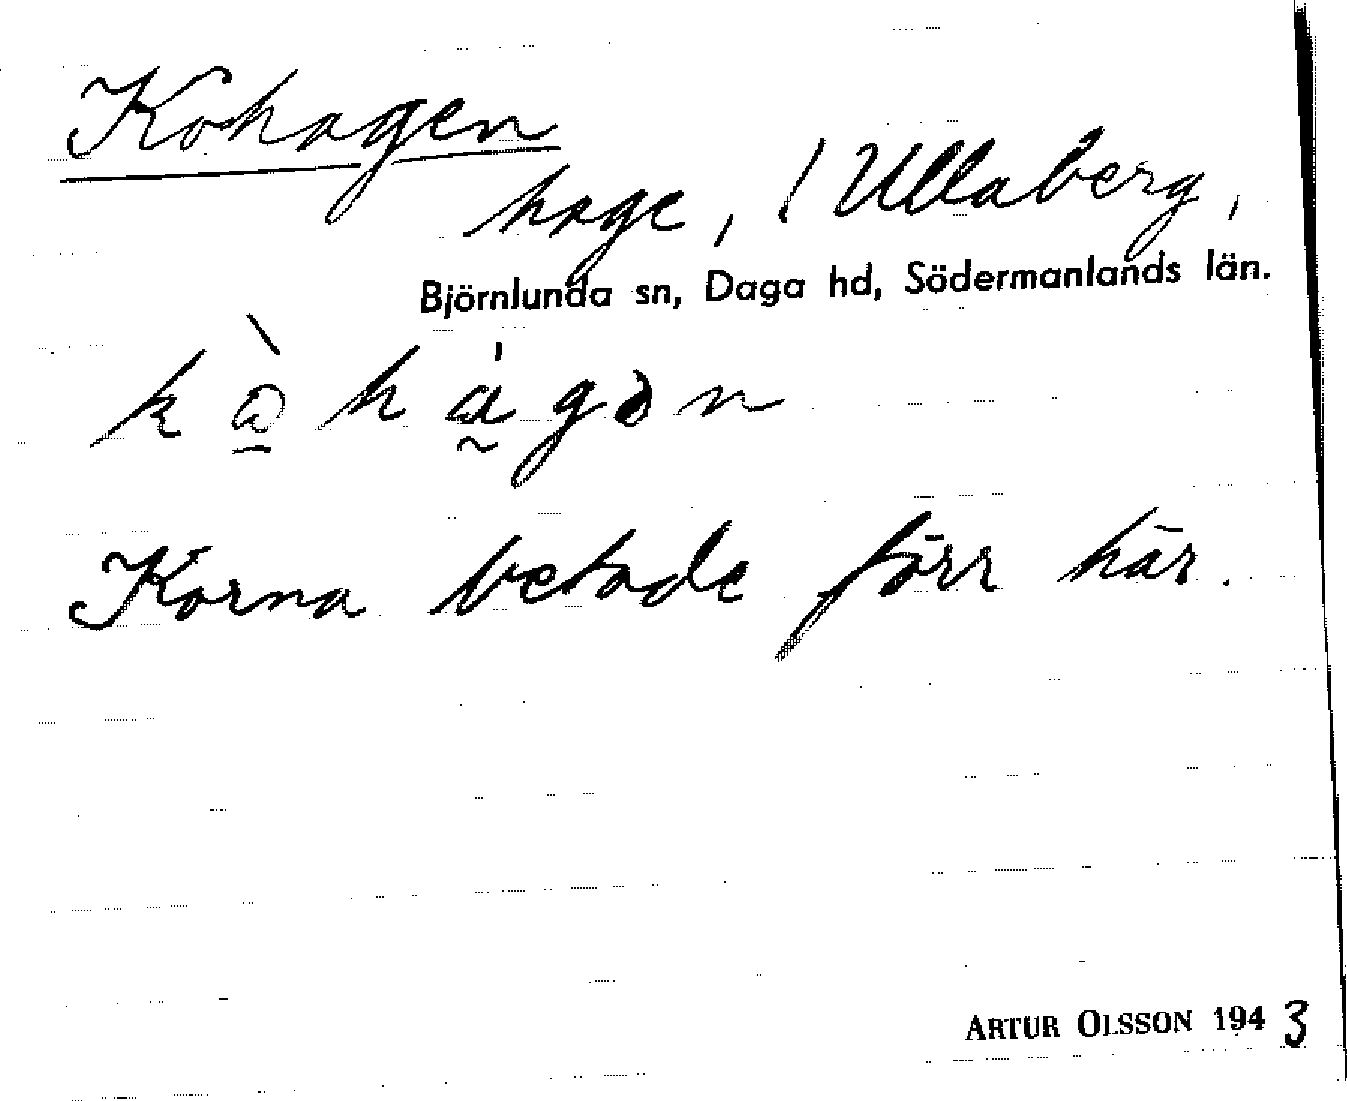 Kohagen
hage, / Ullaberg,
Björnlunda sn, Daga hd, Södermanlands län.
Korna betade förr här.
ARTUR OLSSON 1943